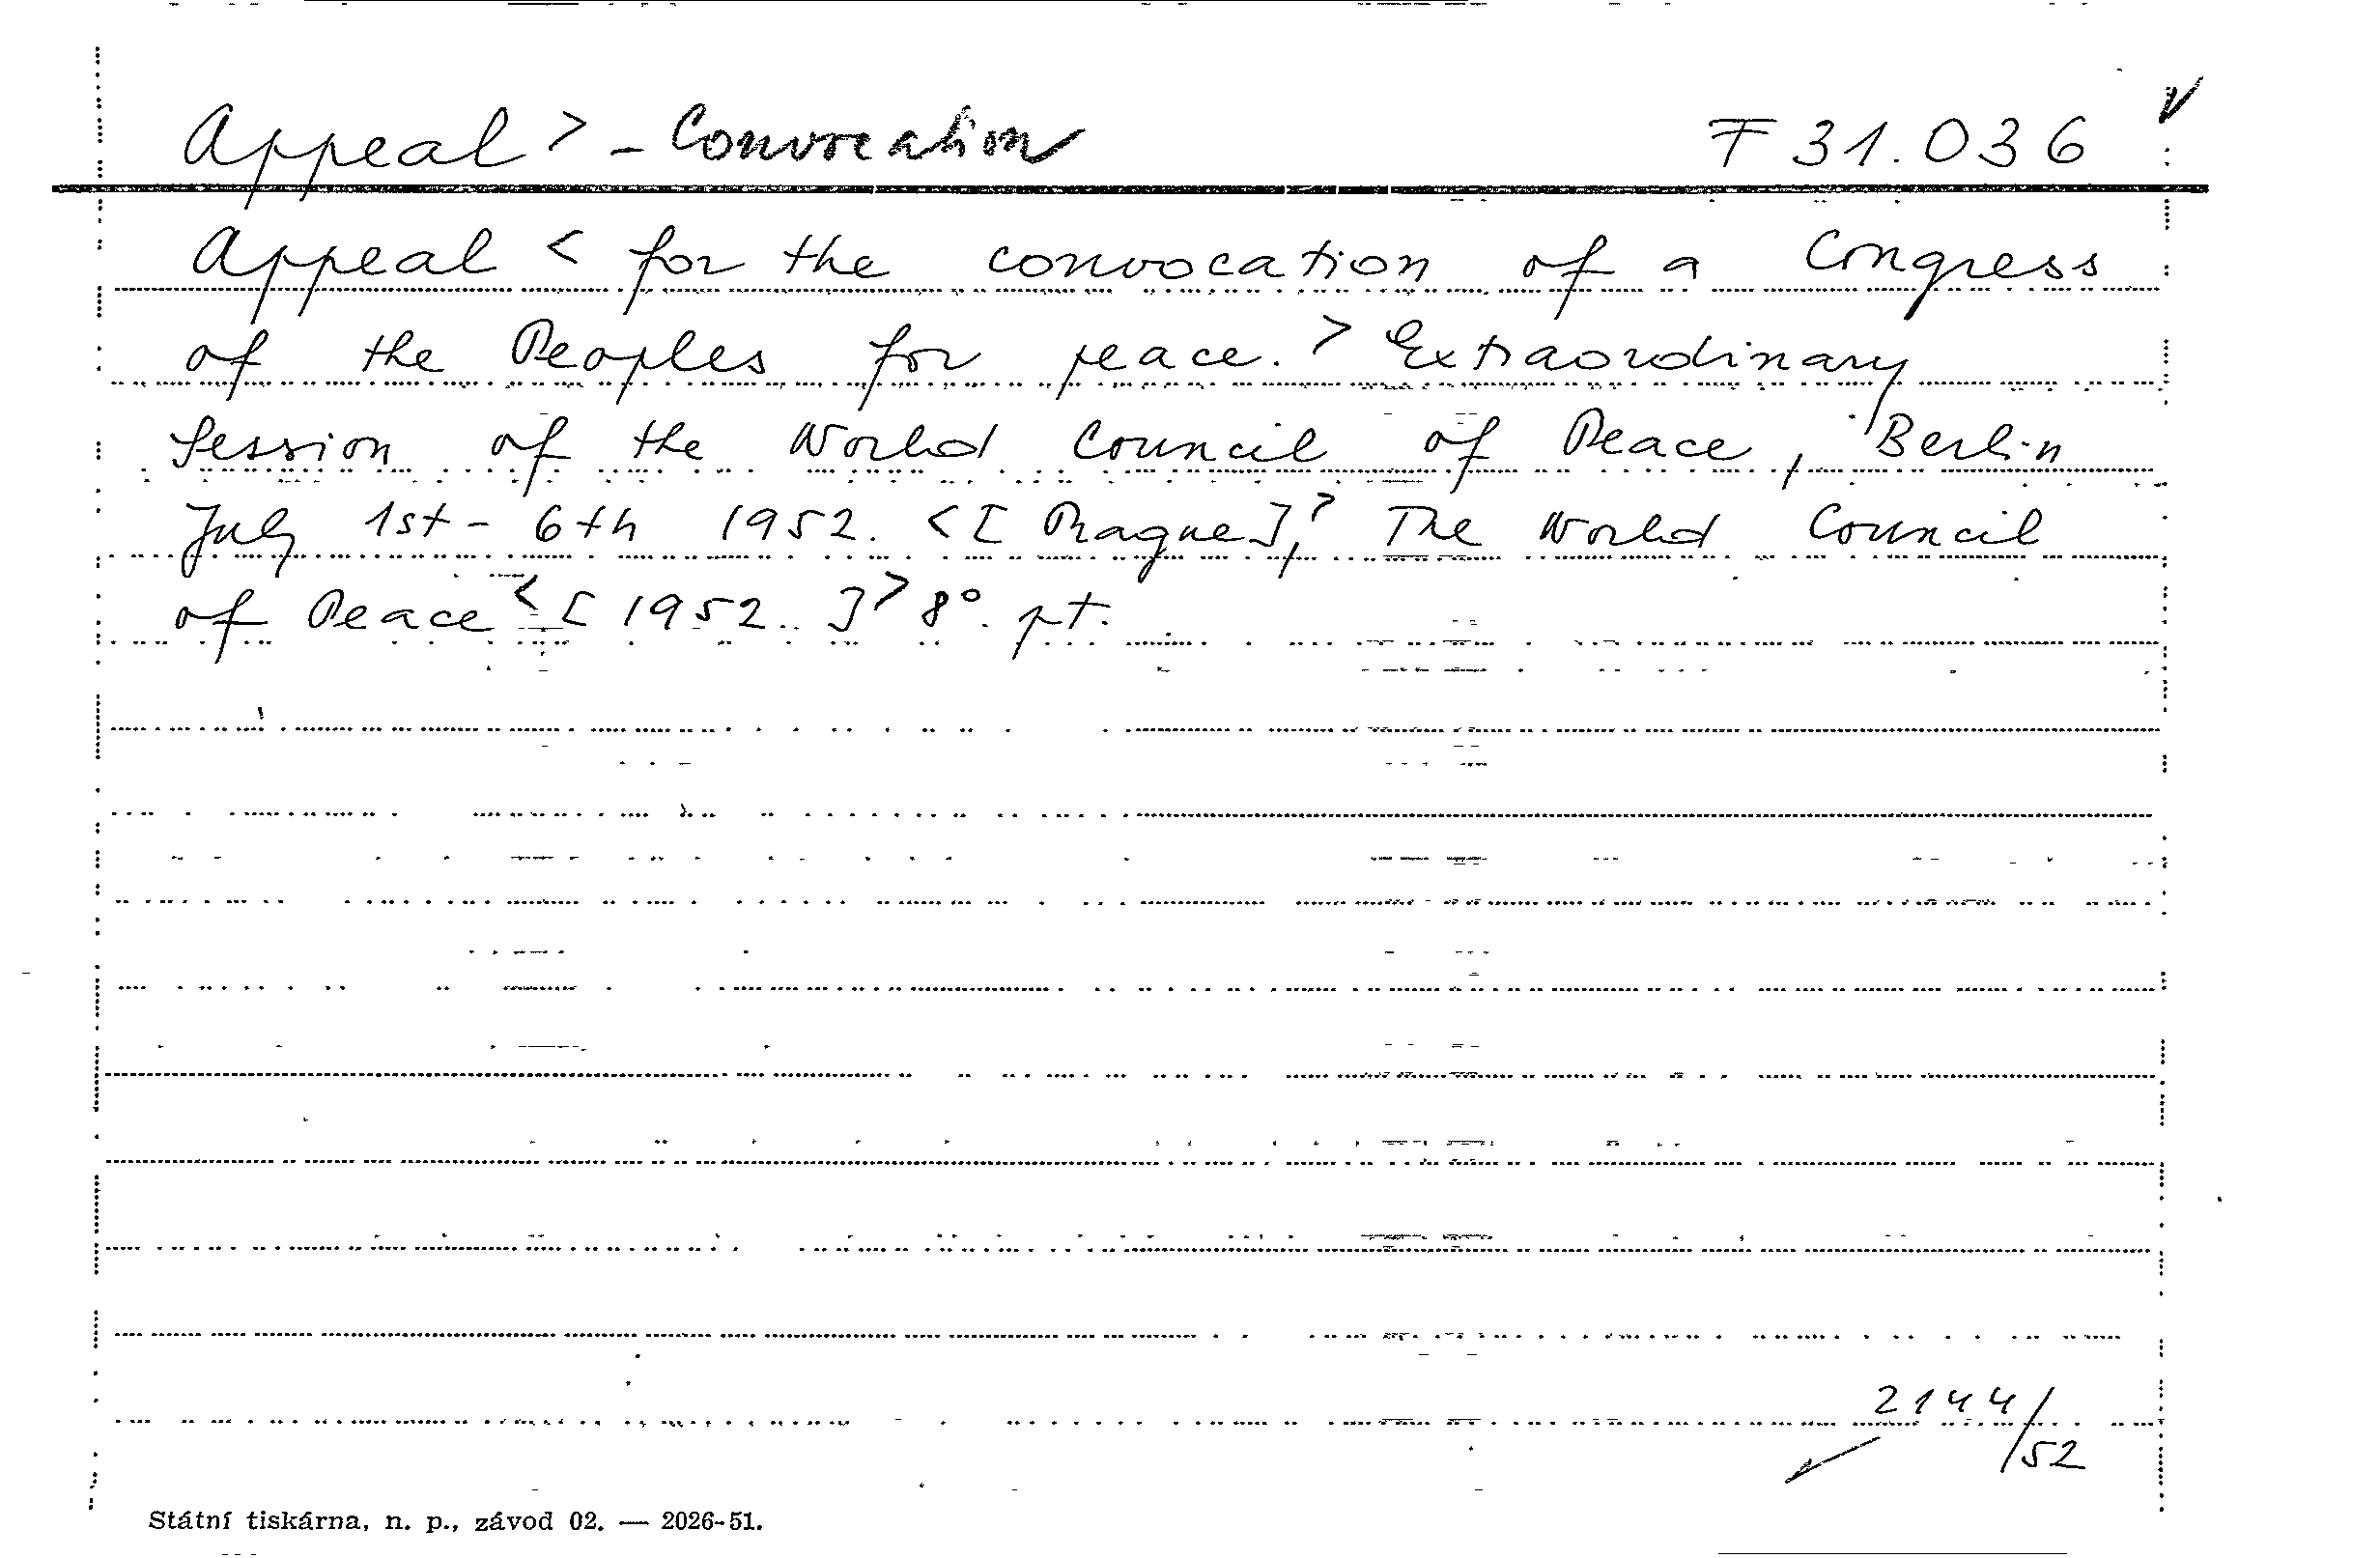 Appeal > - Convocation F 31.036
Appeal < for the convocation of a Congress
of the Peoples for peace. > Extraordinary
Session of the World Council of Peace, Berlin
July 1st - 6th 1952. < [Prague], > The World Council
of Peace < [1952. ] > 8°. pt.
2144/
52
Státní tiskárna, n. p., závod 02. — 2026-51.